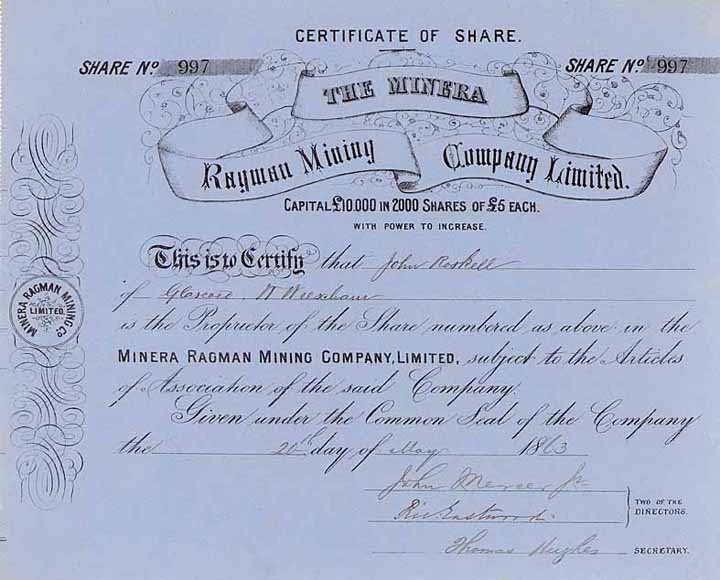 CERTIFICATE OF SHARE.
SHARE No. 997 SHARE No. 997
THE MINERA
Ragman Mining Company Limited.
CAPITAL £10.000 IN 2000 SHARES OF £5 EACH.
WITH POWER TO INCREASE.
This is to Certify that John Roskell
of Wrexham
is the Proprietor of the Share numbered as above in the
MINERA RAGMAN MINING COMPANY, LIMITED, subject to the Articles
of Association of the said Company.
Given under the Common Seal of the Company
the 20th day of May 1863
John Mercer Jr
Ric Eastwood
TWO OF THE
DIRECTORS.
Thomas Hughes SECRETARY.
MINERA RAGMAN MINING Co.
LIMITED.